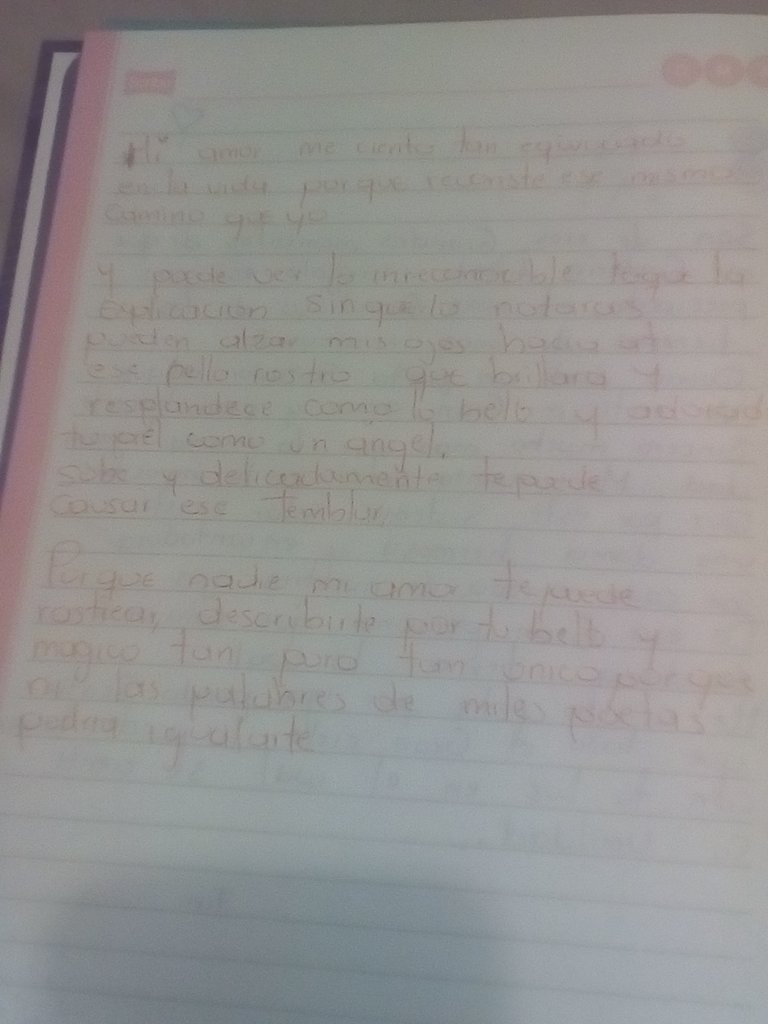 Mi amor me ciento tan
en la vida porque recoriste ese mismo
camino que yo
Y puede ver lo inreconocible toque la
explicacion sin que lo notaras
pueden alzar mis ojos hacia
ese bello rostro que brillara y
resplandece como lo bello y
tu piel como un angel,
sabe y delicadamente te puede
causar ese temblor,
Porque nadie mi amor te puede
describirte por tu bello y
magico tan puro tan unico porque
ni las palabres de miles poetas
podria igualarte